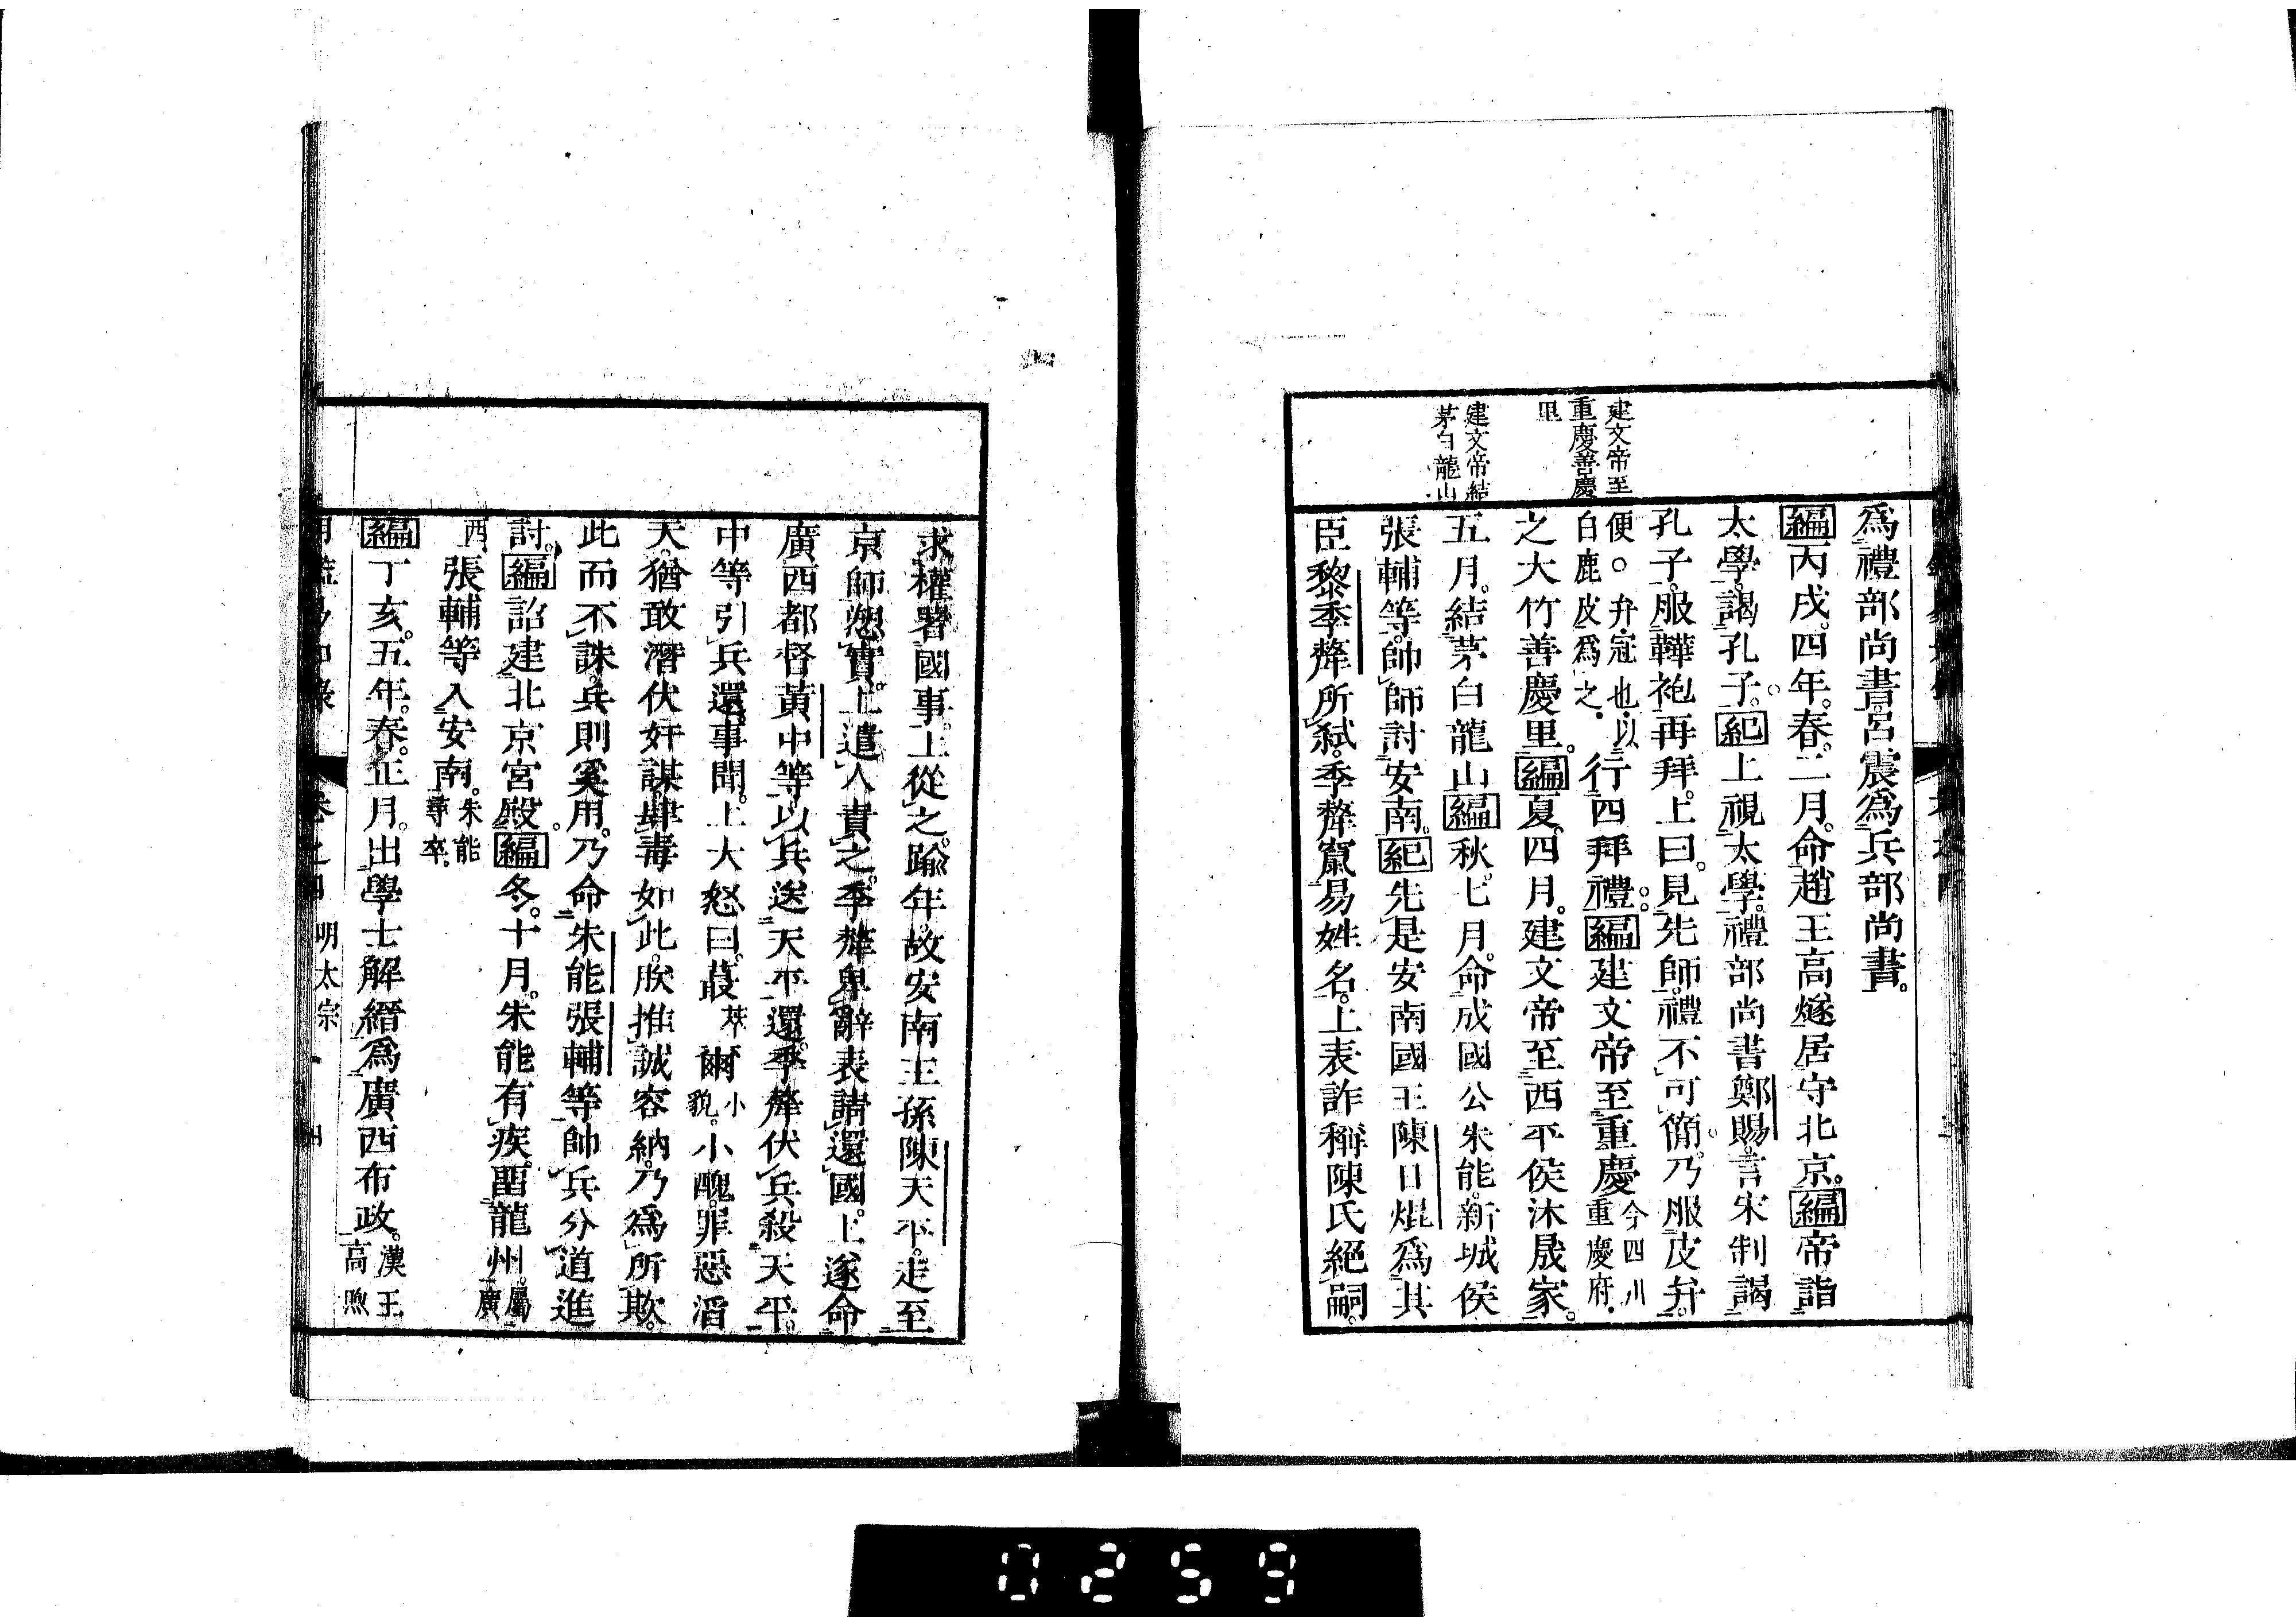 建文帝至
重慶善慶
里
建文帝結
茅白龍山
爲禮部尚書。呂震爲兵部尚書。
編丙戌。四年。春。二月。命趙王高燧居守北京。編帝詣
太學。謁孔子。紀上視太學。禮部尚書鄭賜。言宋制謁
孔子。服鞾袍再拜。上曰。見先師。禮不可簡。乃服皮弁。
便。○弁冠也。以
白鹿皮爲之。
行四拜禮。編建文帝至重慶
今四川
重慶府。
之大竹善慶里。編夏。四月。建文帝至西平侯沐晟家。
五月。結茅白龍山編秋。七月。命成國公朱能。新城侯
張輔等。帥師討安南。紀先是安南國王陳日焜爲其
臣黎季犛所弑。季犛竄易姓名。上表詐稱陳氏絕嗣。
求權署國事。上從之。踰年。故安南王孫陳天平。走至
京師愬實。上遣人責之。季犛卑辭表請還國。上遂命
廣西都督黃中等以兵送天平還。季犛伏兵殺天平。
中等引兵還。事聞。上大怒曰。蕞
爾
小
貌。
小醜。罪惡滔
天。猶敢潛伏奸謀。肆毒如此。朕推誠容納。乃爲所欺。
此而不誅。兵則奚用。乃命朱能張輔等帥兵分道進
討。編詔建北京宮殿。編冬。十月。朱能有疾。留龍州。
屬廣
西。
張輔等入安南。
朱能
尋卒。
編丁亥。五年。春。正月。出學士解縉爲廣西布政。
漢王
高煦
卷之四
明太宗
0259